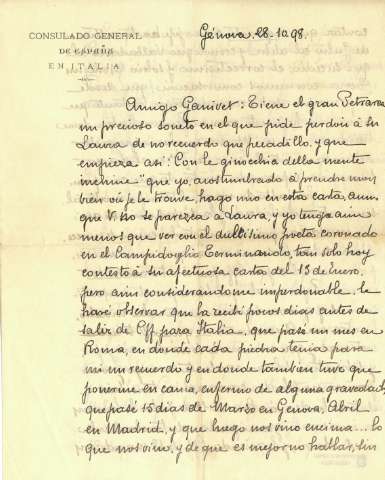 CONSULADO GENERAL
DE ESPAÑA
EN ITALIA
Génova 28.10.98.
Amigo Ganivet: Tiene el gran Petrarca
un precioso soneto en el que pide perdón á su
Laura de no recuerdo que pecadillo, y que
empieza así: Con le ginocchia della mente
inchine" que yo, acostumbrado á prendre mon
bien où je le trouve, hago mio en esta carta, aun
que V. no se parezca á Laura, y yo tenga aun
menos que ver con el dulcísimo poeta coronado
en el Campidoglio. Terminando, tan solo hoy
contesto á su afectuosa carta del 15 de Enero,
pero aun considerandome imperdonable, le
haré observar que la recibí pocos dias antes de
salir de para Italia, que pasé un mes en
Roma, en donde cada piedra tenia para
mi un recuerdo y en donde tambien tuve que
ponerme en cama, enfermo de alguna gravedad,
que pasé 15 dias de Marzo en Genova, Abril
en Madrid, y que luego nos vino encima... lo
que nos vino, y de que es mejor no hablar, sin